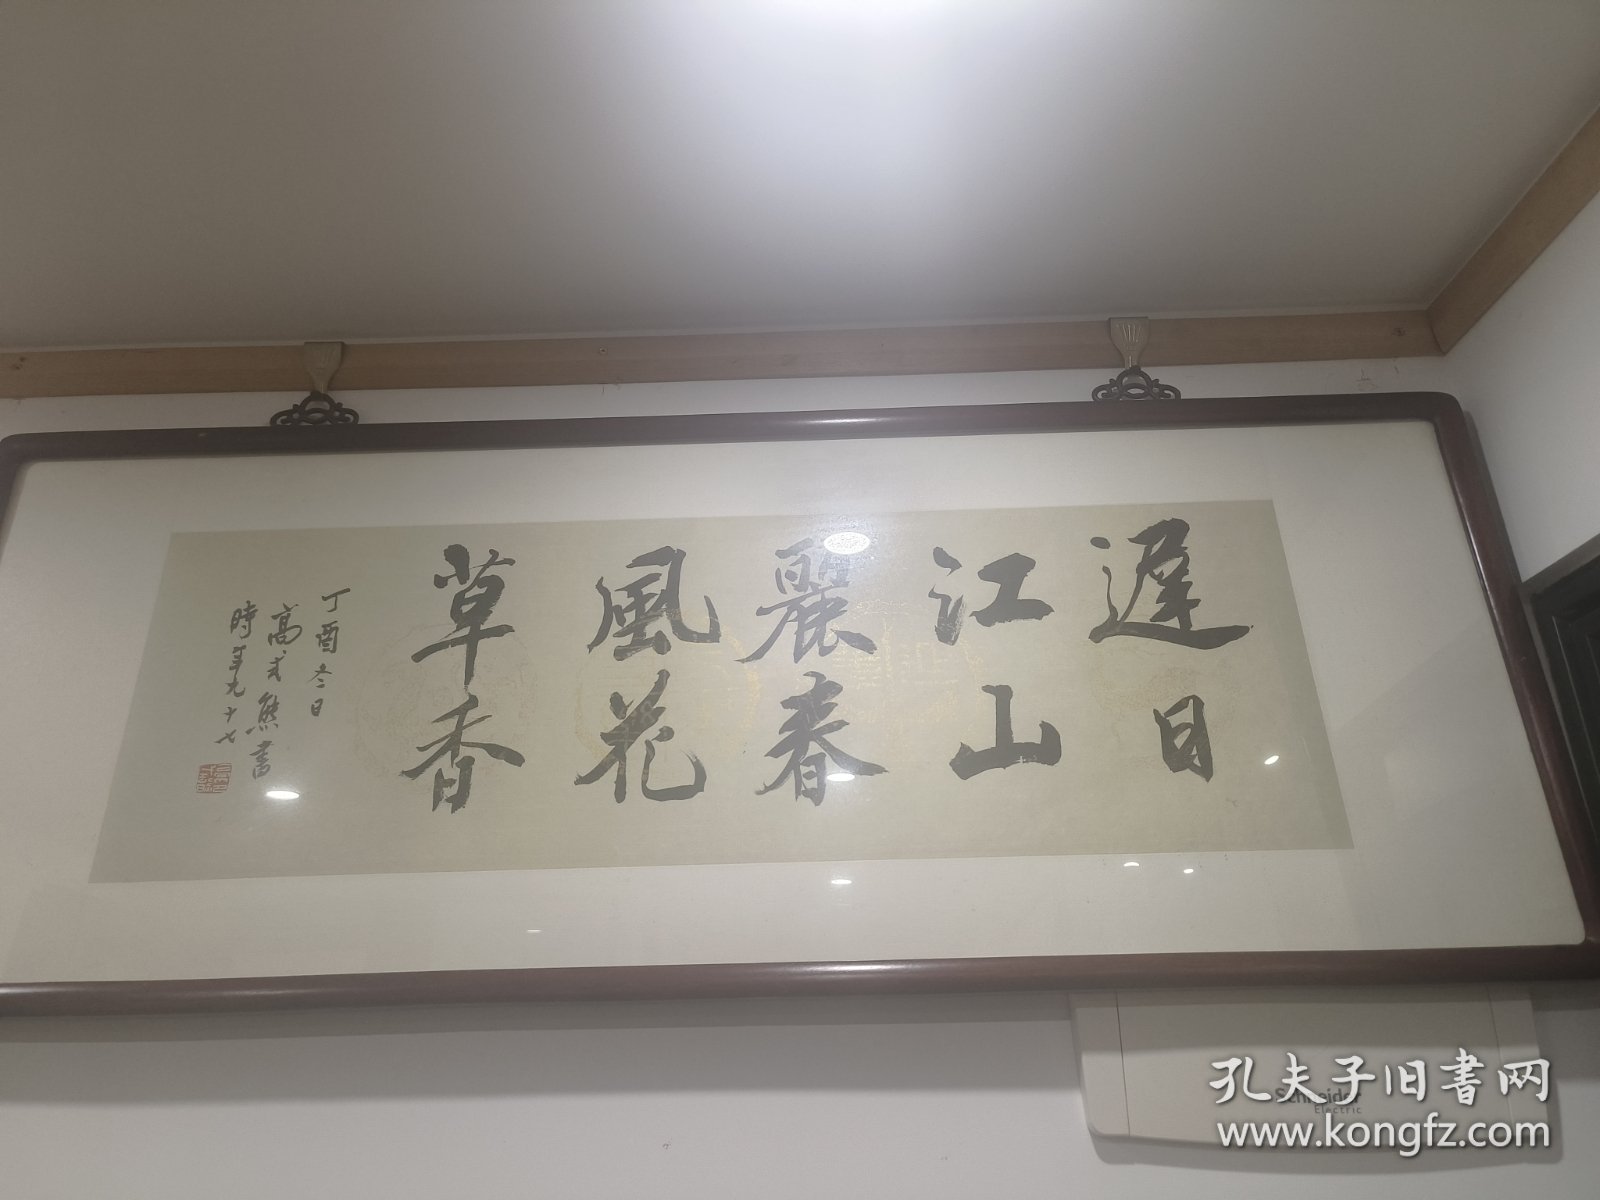 遲日
江山
麗春
風花
草香
丁酉冬日
高式熊書
時年九十七
Schneider
Electric
孔夫子旧书网
www.kongfz.com